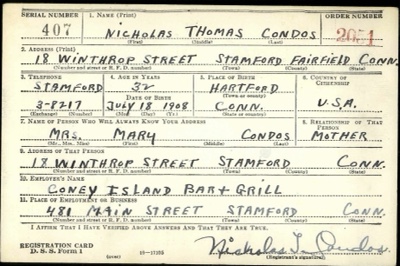 SERIAL NUMBER 1. NAME (Print) ORDER NUMBER
407 NICHOLAS THOMAS CONDOS 2051
(First) (Middle) (Last)
2. ADDRESS (Print)
18 WINTHROP STREET STAMFORD FAIRFIELD CONN.
(Number and street or R. F. D. number) (Town) (County) (State)
3. TELEPHONE 4. AGE IN YEARS 5. PLACE OF BIRTH 6. COUNTRY OF CITIZENSHIP
STAMFORD 32 HARTFORD
DATE OF BIRTH (Town or county)
3-8217 JULY 18 1908 CONN. U.S.A.
(Exchange) (Number) (Mo.) (Day) (Yr.) (State or country)
7. NAME OF PERSON WHO WILL ALWAYS KNOW YOUR ADDRESS 8. RELATIONSHIP OF THAT PERSON
MRS. MARY CONDOS MOTHER
(Mr., Mrs., Miss) (First) (Middle) (Last)
9. ADDRESS OF THAT PERSON
18 WINTHROP STREET STAMFORD CONN.
(Number and street or R. F. D. number) (Town) (County) (State)
10. EMPLOYER'S NAME
CONEY ISLAND BAR + GRILL
11. PLACE OF EMPLOYMENT OR BUSINESS
481 MAIN STREET STAMFORD CONN.
(Number and street or R. F. D. number) (Town) (County) (State)
I AFFIRM THAT I HAVE VERIFIED ABOVE ANSWERS AND THAT THEY ARE TRUE.
REGISTRATION CARD
D. S. S. Form 1 (over) Nicholas T. Condos
(Registrant's signature)